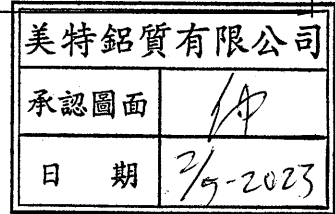 美特鋁質有限公司
承認圖面 仲
日 期 2/5-2023